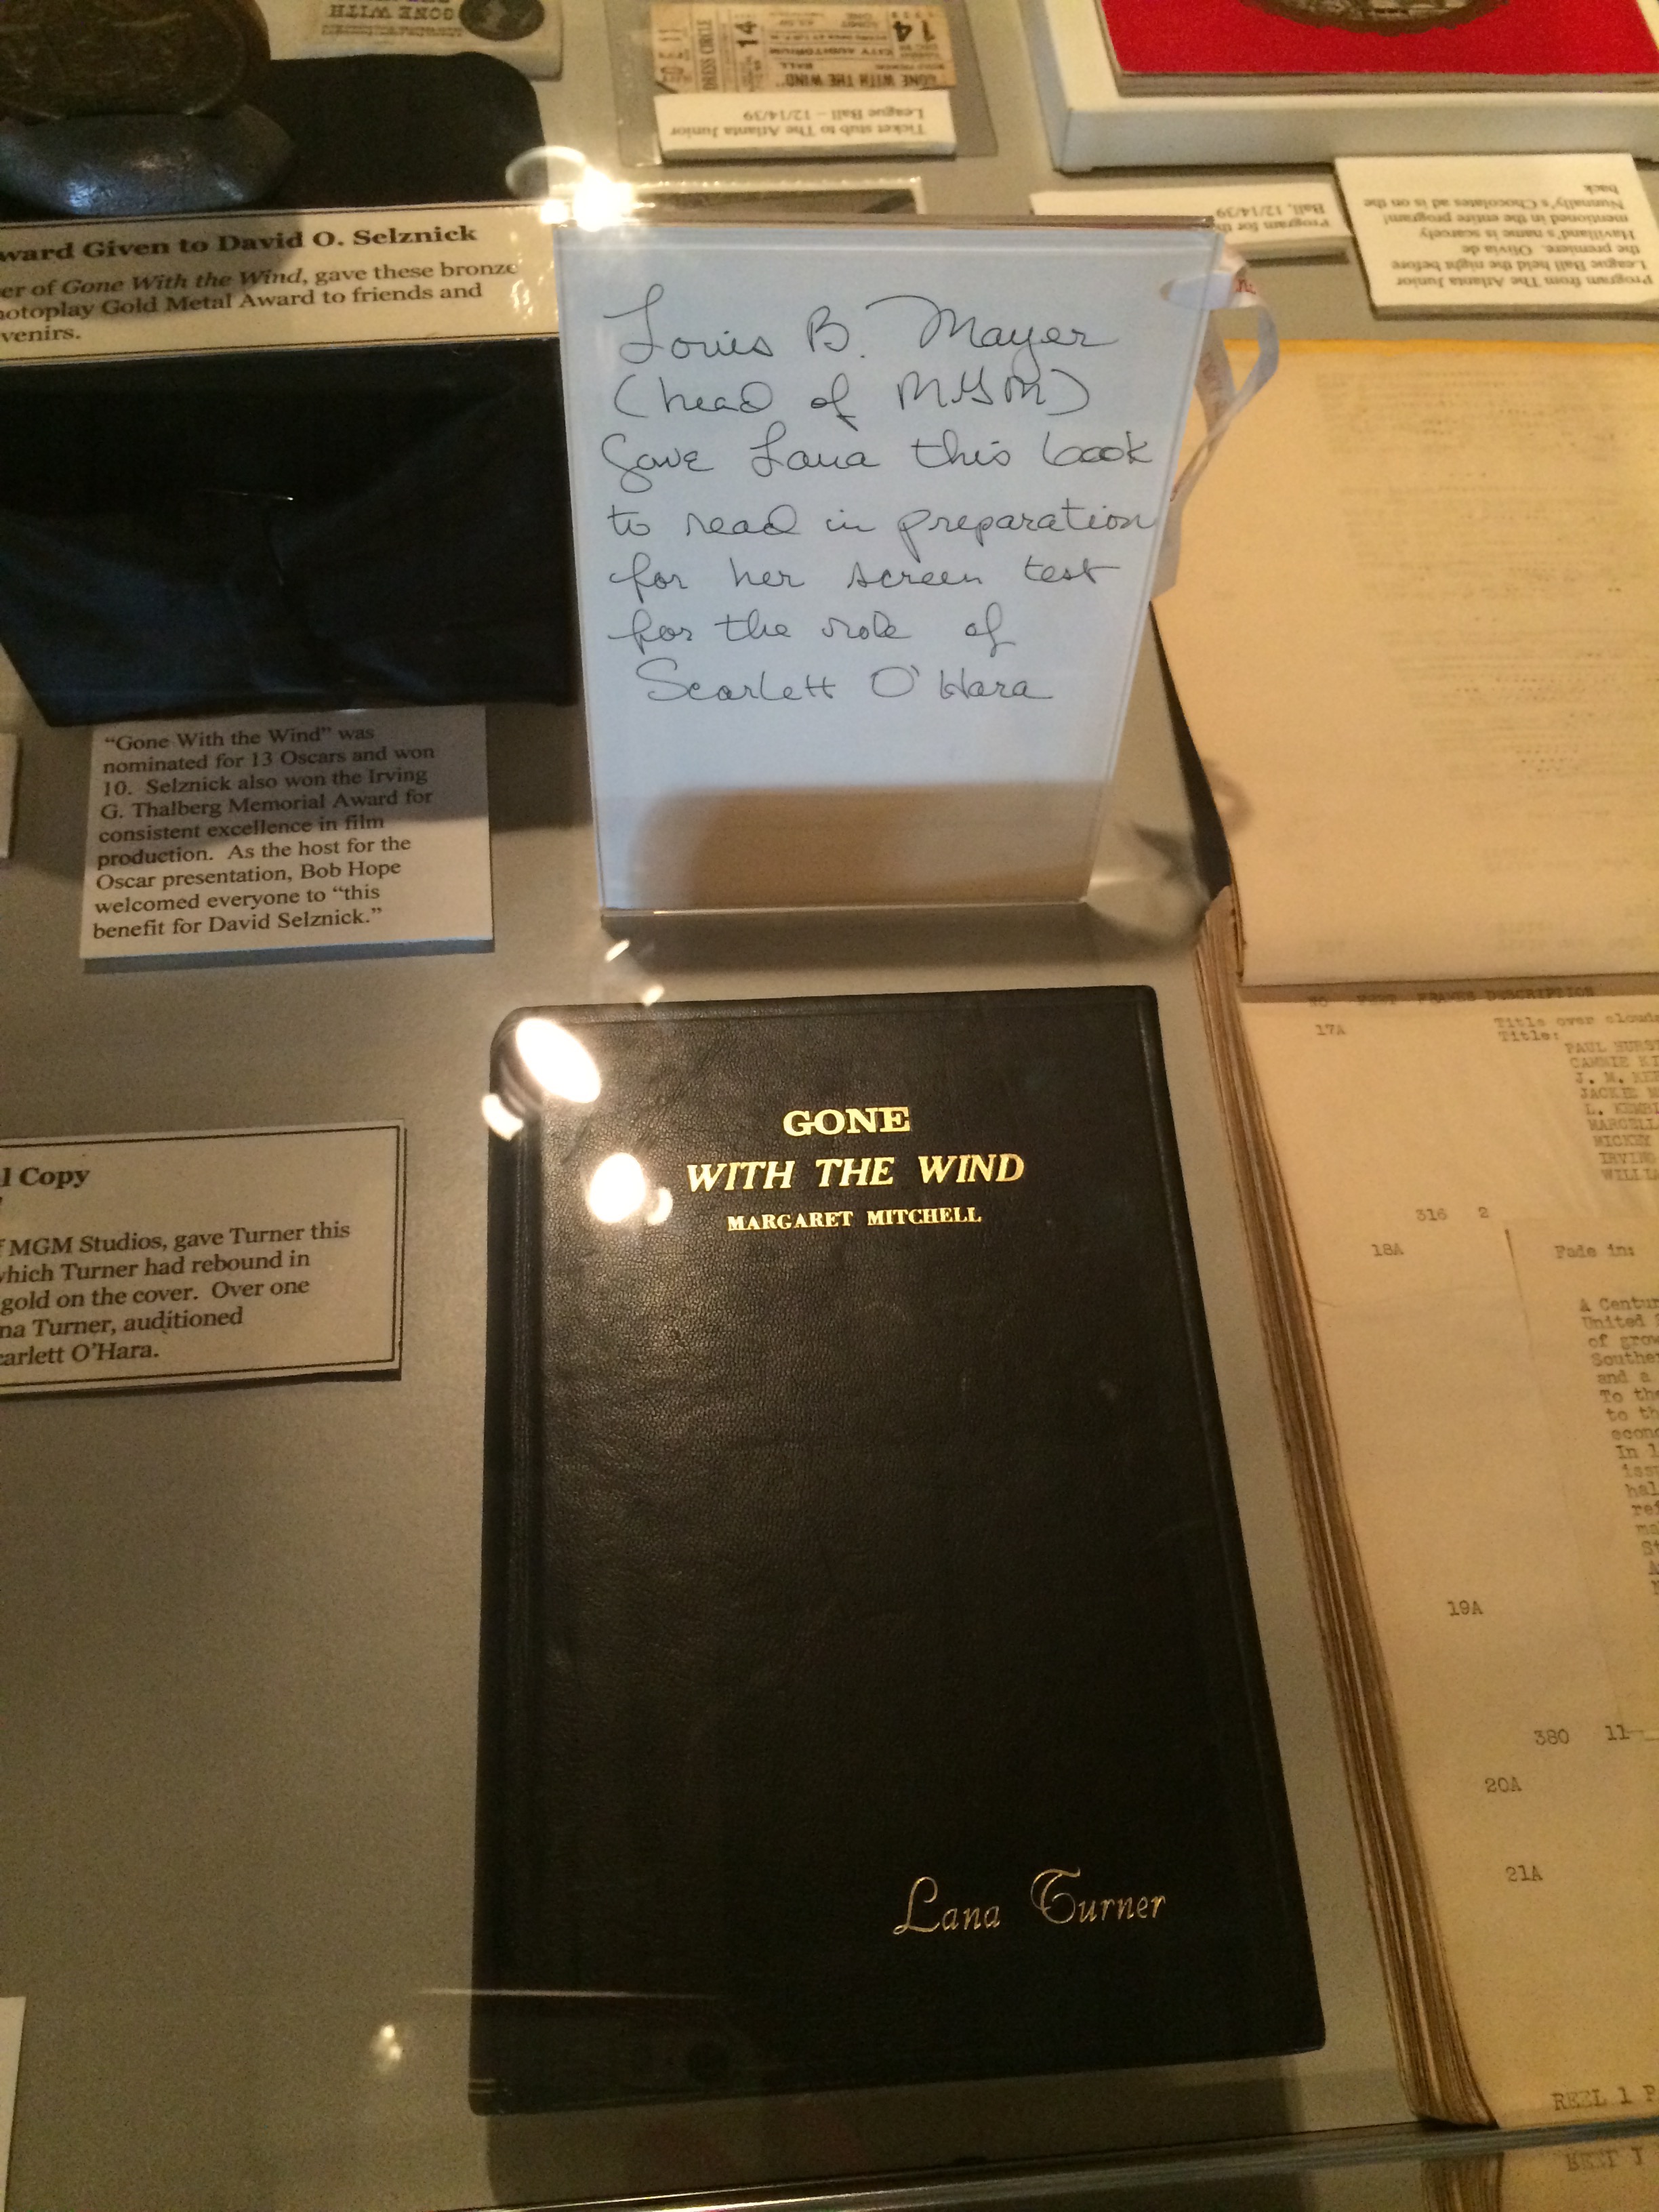 GONE WITH
DRESS CIRCLE
14
CITY AUDITORIUM
BALL
"GONE WITH THE WIND"
14
Ticket stub to The Atlanta Junior
League Ball – 12/14/39
Program for th
Ball, 12/14/39
Program from The Atlanta Junior
League Ball held the night before
the premiere. Olivia de
Havilland's name is scarcely
mentioned in the entire program!
Nunnally's Chocolates ad is on the
back
ward Given to David O. Selznick
er of Gone With the Wind, gave these bronze
hotoplay Gold Metal Award to friends and
venirs.
Louis B. Mayer
(head of MGM)
gave Lana this book
to read in preparation
for her screen test
for the role of
Scarlett O'Hara
"Gone With the Wind" was
nominated for 13 Oscars and won
10. Selznick also won the Irving
G. Thalberg Memorial Award for
consistent excellence in film
production. As the host for the
Oscar presentation, Bob Hope
welcomed everyone to "this
benefit for David Selznick."
l Copy
f MGM Studios, gave Turner this
which Turner had rebound in
gold on the cover. Over one
na Turner, auditioned
carlett O'Hara.
GONE
WITH THE WIND
MARGARET MITCHELL
Lana Turner
NO FEET FRAMES DESCRIPTION
17A Title over clouds
Title:
PAUL HURST
CARRIE
J. M.
JACKIE M
L.
MARCELL
MICKEY
IRVING
WILLI
316 2
18A Fade in:
A Centur
United S
of grow
Souther
and a
To the
to th
econo
In 1
issu
hal
ref
ma
St
A
19A
380 11
20A
21A
REEL 1 P